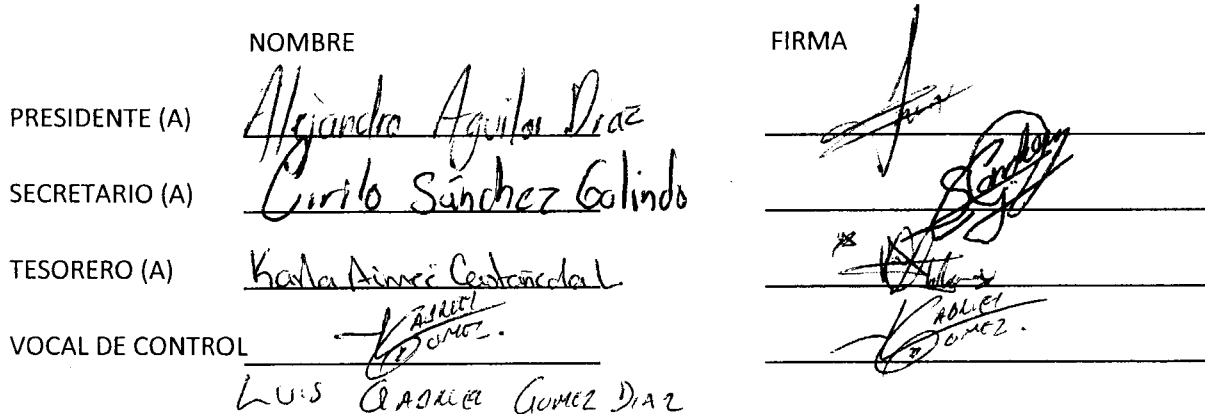 NOMBRE FIRMA
PRESIDENTE (A) Alejandro Aguilar Diaz
SECRETARIO (A) Cirilo Sánchez Galindo
TESORERO (A) Karla Aimeé Castañeda L
VOCAL DE CONTROL GABRIEL GOMEZ. GABRIEL GOMEZ.
LUIS GABRIEL GOMEZ DIAZ